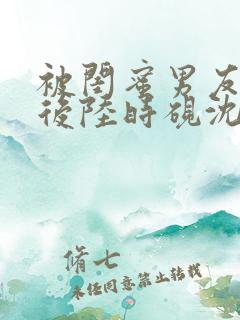 被閨蜜男友
後陸時硯沈
脩七
未经同意禁止转载